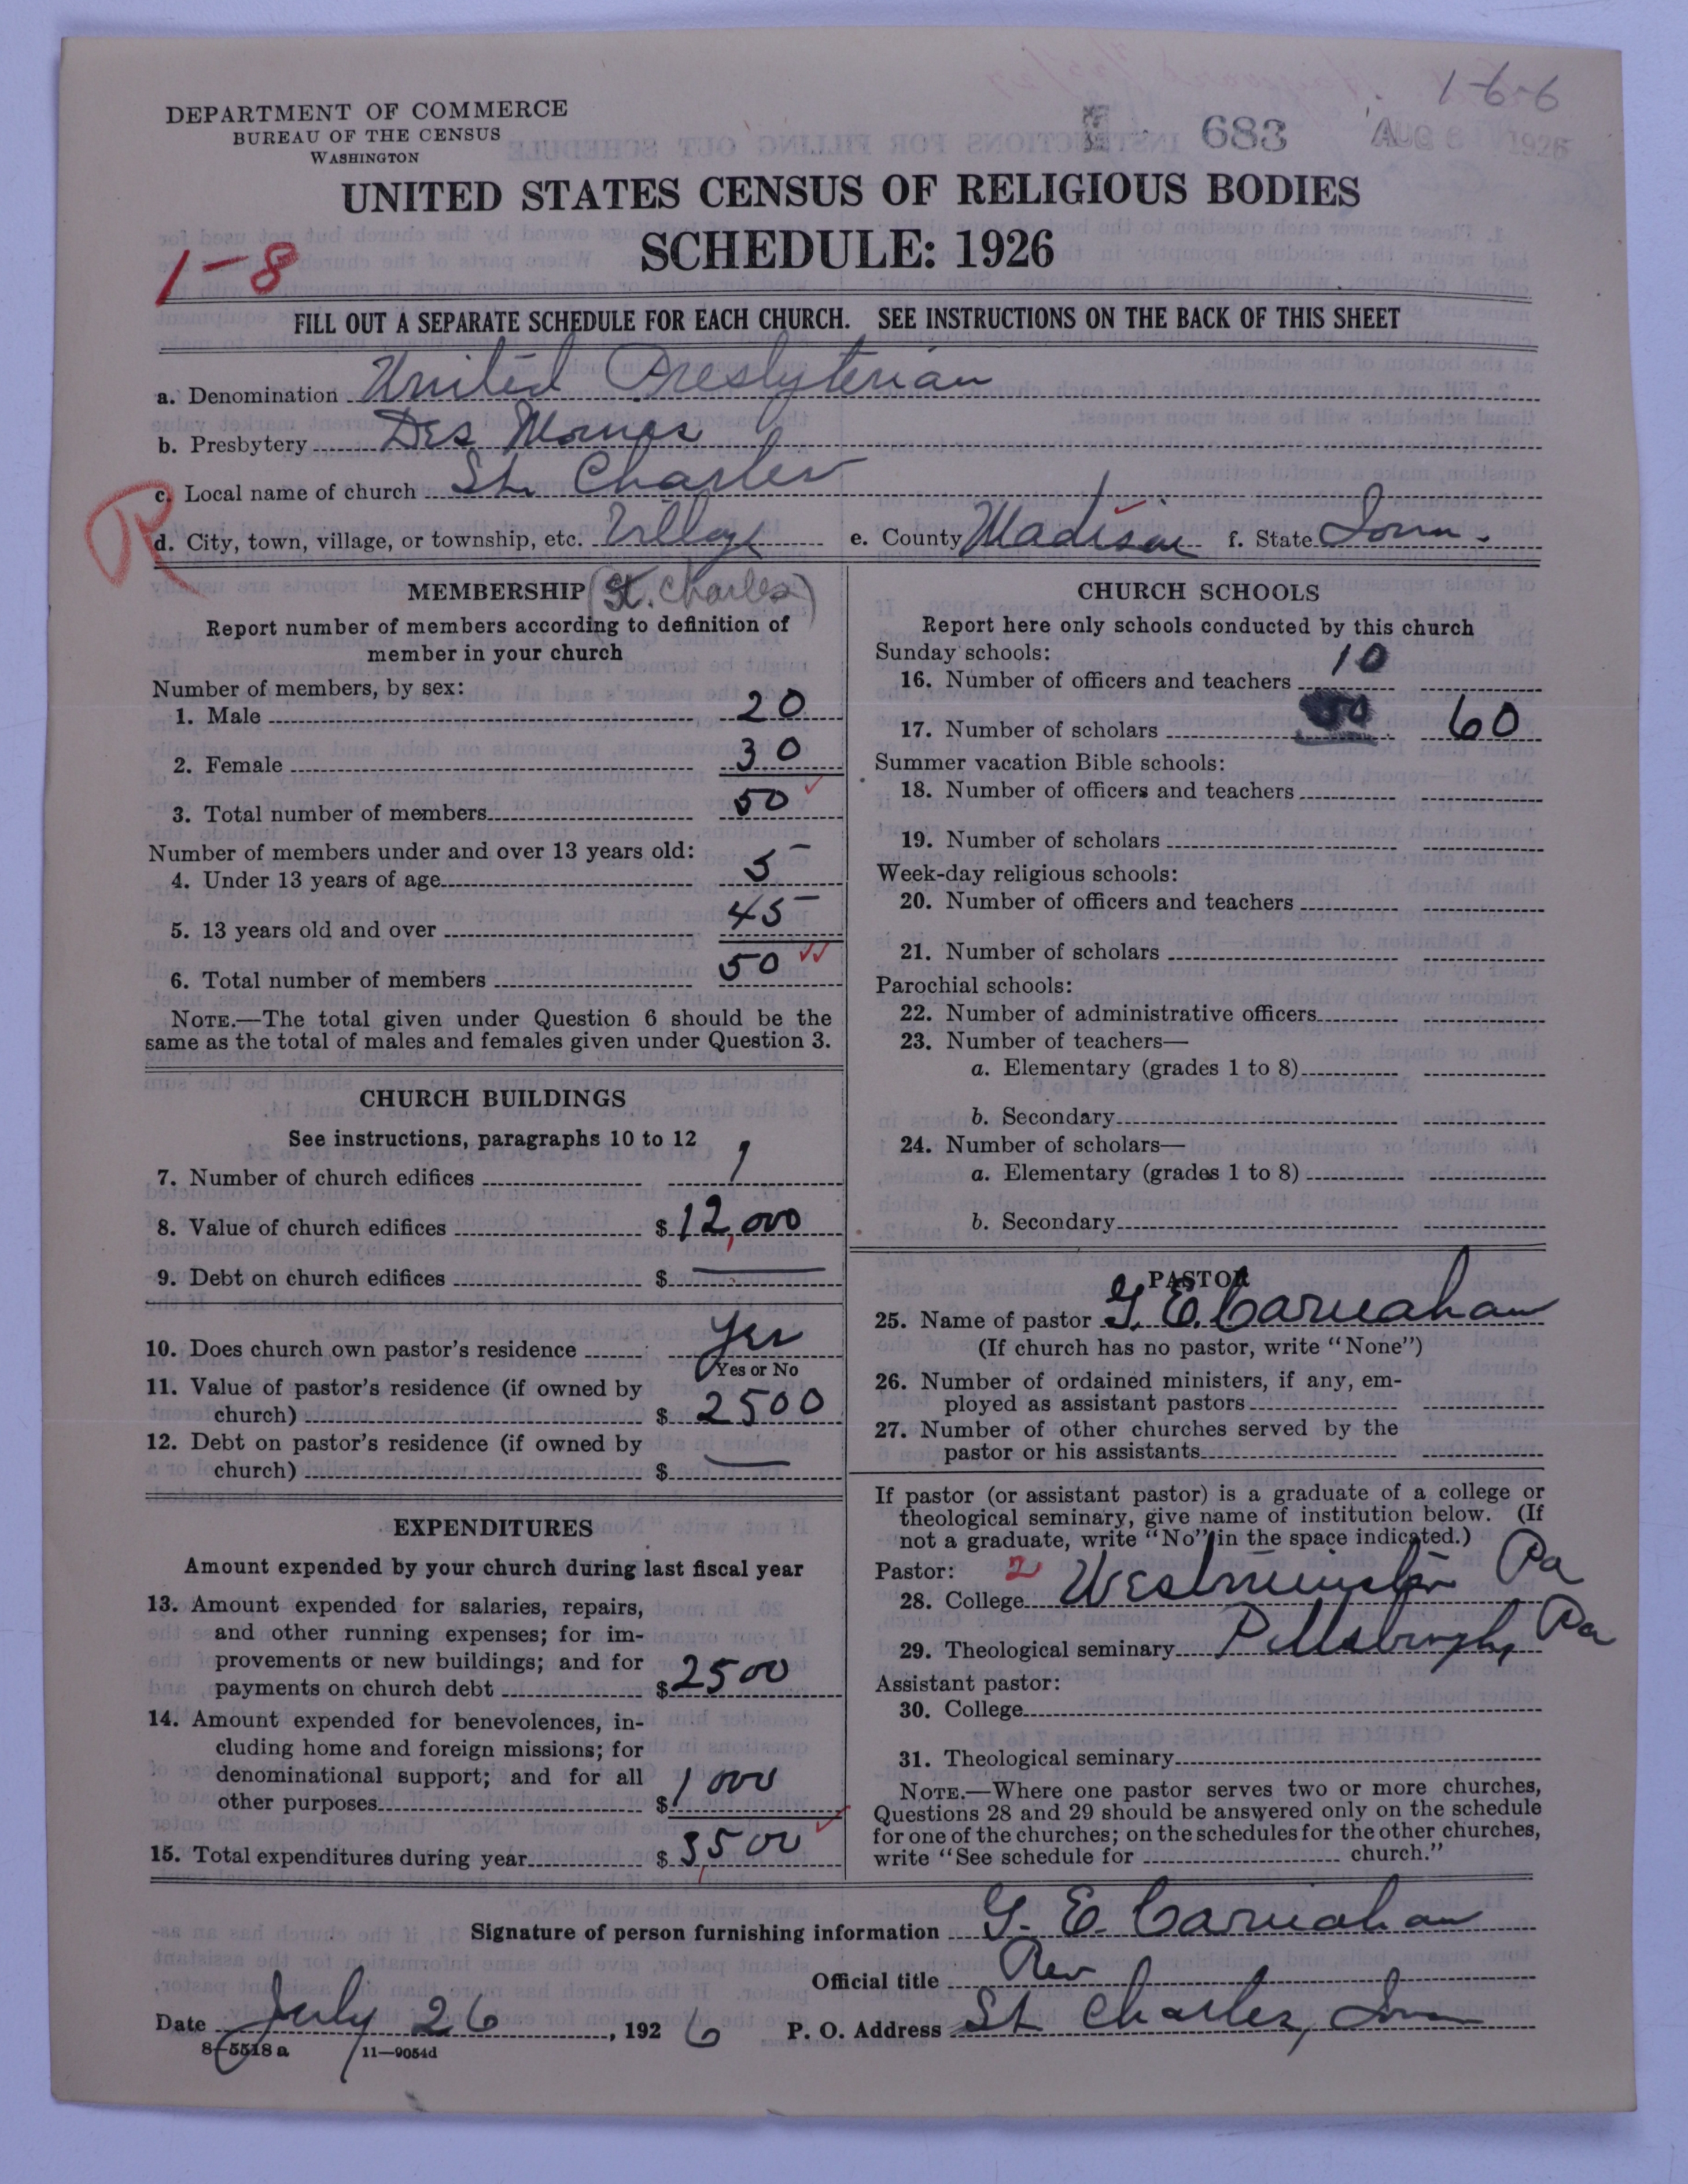 1-6-6
DEPARTMENT OF COMMERCE
BUREAU OF THE CENSUS
WASHINGTON
683 AUG 6 1926
UNITED STATES CENSUS OF RELIGIOUS BODIES
SCHEDULE: 1926
1-8
FILL OUT A SEPARATE SCHEDULE FOR EACH CHURCH. SEE INSTRUCTIONS ON THE BACK OF THIS SHEET
a. Denomination United Presbyterian
b. Presbytery Des Moines
c. Local name of church St. Charles
R
d. City, town, village, or township, etc. Village e. County Madison f. State Iowa.
MEMBERSHIP (St. Charles)
Report number of members according to definition of
member in your church
Number of members, by sex:
1. Male 20
2. Female 30
3. Total number of members 50
Number of members under and over 13 years old:
4. Under 13 years of age 5
5. 13 years old and over 45
6. Total number of members 50
NOTE.—The total given under Question 6 should be the
same as the total of males and females given under Question 3.
CHURCH BUILDINGS
See instructions, paragraphs 10 to 12
7. Number of church edifices 1
8. Value of church edifices $ 12,000
9. Debt on church edifices $ —
10. Does church own pastor's residence Yes
Yes or No
11. Value of pastor's residence (if owned by
church) $ 2500
12. Debt on pastor's residence (if owned by
church) $ —
EXPENDITURES
Amount expended by your church during last fiscal year
13. Amount expended for salaries, repairs,
and other running expenses; for im-
provements or new buildings; and for
payments on church debt $ 2500
14. Amount expended for benevolences, in-
cluding home and foreign missions; for
denominational support; and for all
other purposes $ 1000
15. Total expenditures during year $ 3,500
CHURCH SCHOOLS
Report here only schools conducted by this church
Sunday schools:
16. Number of officers and teachers 10
17. Number of scholars 60
Summer vacation Bible schools:
18. Number of officers and teachers
19. Number of scholars
Week-day religious schools:
20. Number of officers and teachers
21. Number of scholars
Parochial schools:
22. Number of administrative officers
23. Number of teachers—
a. Elementary (grades 1 to 8)
b. Secondary
24. Number of scholars—
a. Elementary (grades 1 to 8)
b. Secondary
PASTOR
25. Name of pastor G. E. Carnahan
(If church has no pastor, write "None")
26. Number of ordained ministers, if any, em-
ployed as assistant pastors
27. Number of other churches served by the
pastor or his assistants
If pastor (or assistant pastor) is a graduate of a college or
theological seminary, give name of institution below. (If
not a graduate, write "No" in the space indicated.)
Pastor: 2
28. College Westminster Pa
29. Theological seminary Pittsburgh, Pa
Assistant pastor:
30. College
31. Theological seminary
NOTE.—Where one pastor serves two or more churches,
Questions 28 and 29 should be answered only on the schedule
for one of the churches; on the schedules for the other churches,
write "See schedule for church."
Signature of person furnishing information G. E. Carnahan
Official title Rev
Date July 26, 1926 P. O. Address St Charles, Iowa
8-5518 a 11-9054d